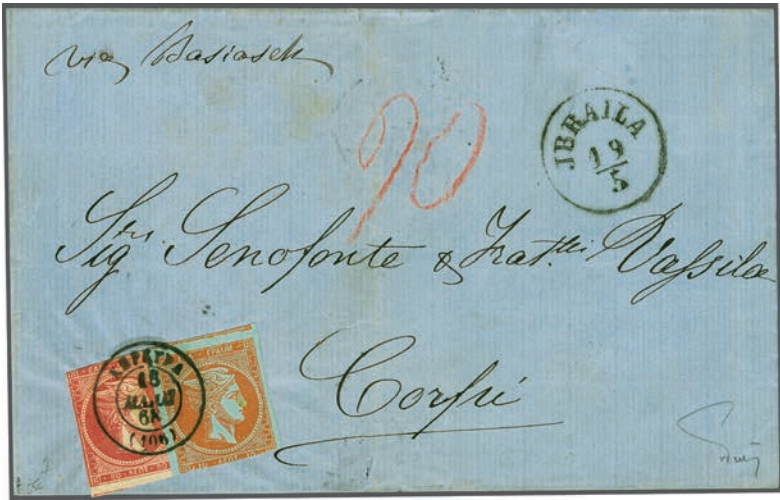 via Basiasch
90
JBRAILA
19/5
Sigri. Senofonte & Fratlli Vassila
Corfù
ΚΕΡΚΥΡΑ
18
68
(106)